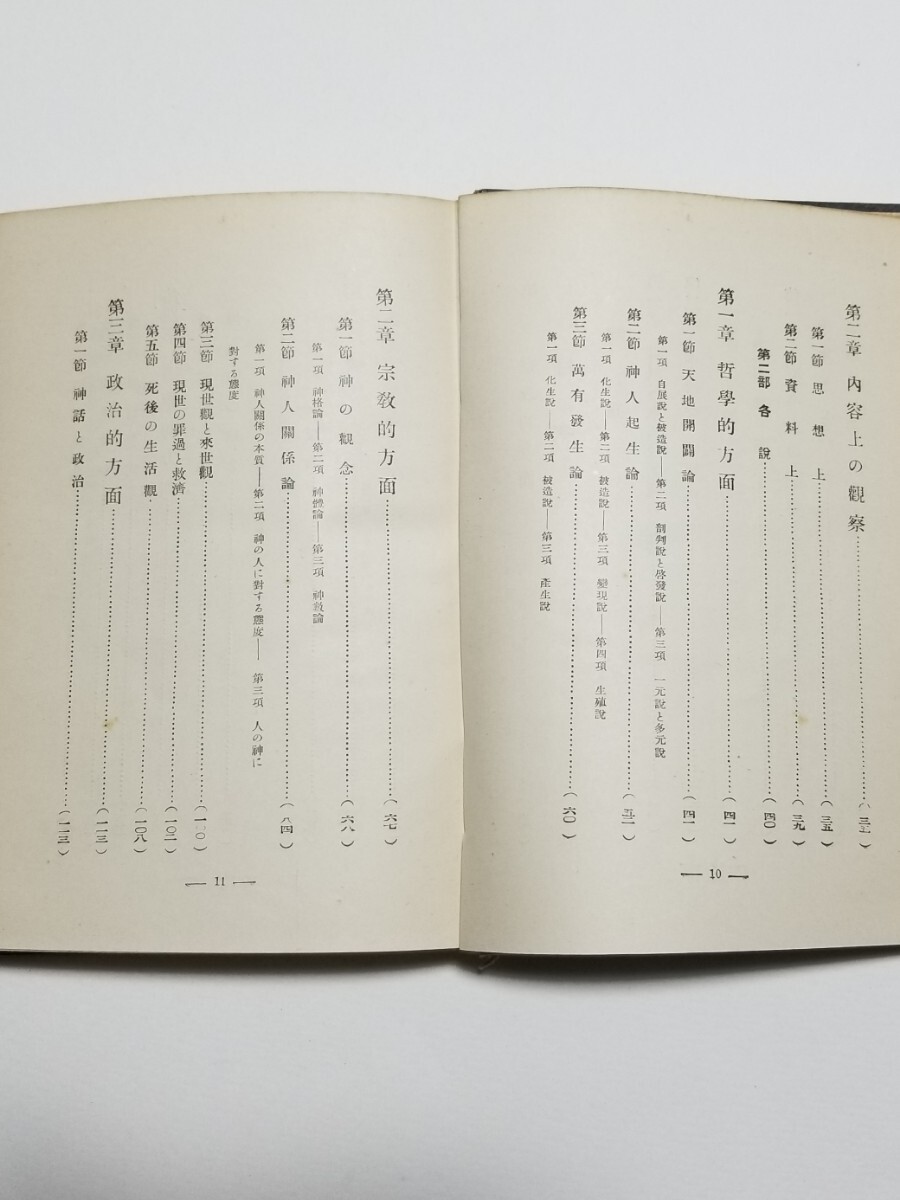 第二章 內容上の觀察
第一節 思想上……(三五)
第二節 資料上……(三九)
第二部 各說……(四〇)
第一章 哲學的方面……(四一)
第一節 天地開闢論……(四一)
第一項 自展說と被造說——第二項 剖判說と啓發說——第三項 一元說と多元說
第二節 神人起生論
第一項 化生說——第二項 被造說——第三項 變現說——第四項 生殖說
第三節 萬有發生論……(六〇)
第一項 化生說——第二項 被造說——第三項 產生說
— 10 —
第二章 宗敎的方面……(六七)
第一節 神の觀念……(六八)
第一項 神格論——第二項 神體論——第三項 神敎論
第二節 神人關係論……(八四)
第一項 神人關係の本質——第二項 神の人に對する態度——第三項 人の神に
對する態度
第三節 現世觀と來世觀
第四節 現世の罪過と救濟
第五節 死後の生活觀……(一〇八)
第三章 政治的方面……(一一三)
第一節 神話と政治……(一一三)
— 11 —